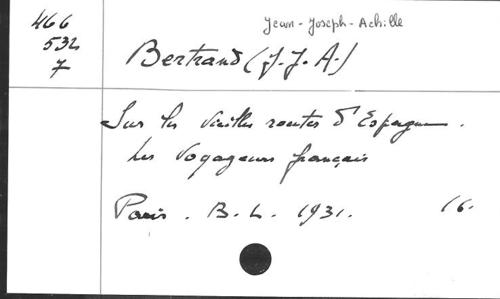 Jean-Joseph-Achille
466
532
7
Bertrand (J. J. A.)
Sur les vieilles routes d'Espagne.
Les Voyageurs français
Paris. B. L. 1931. 16.